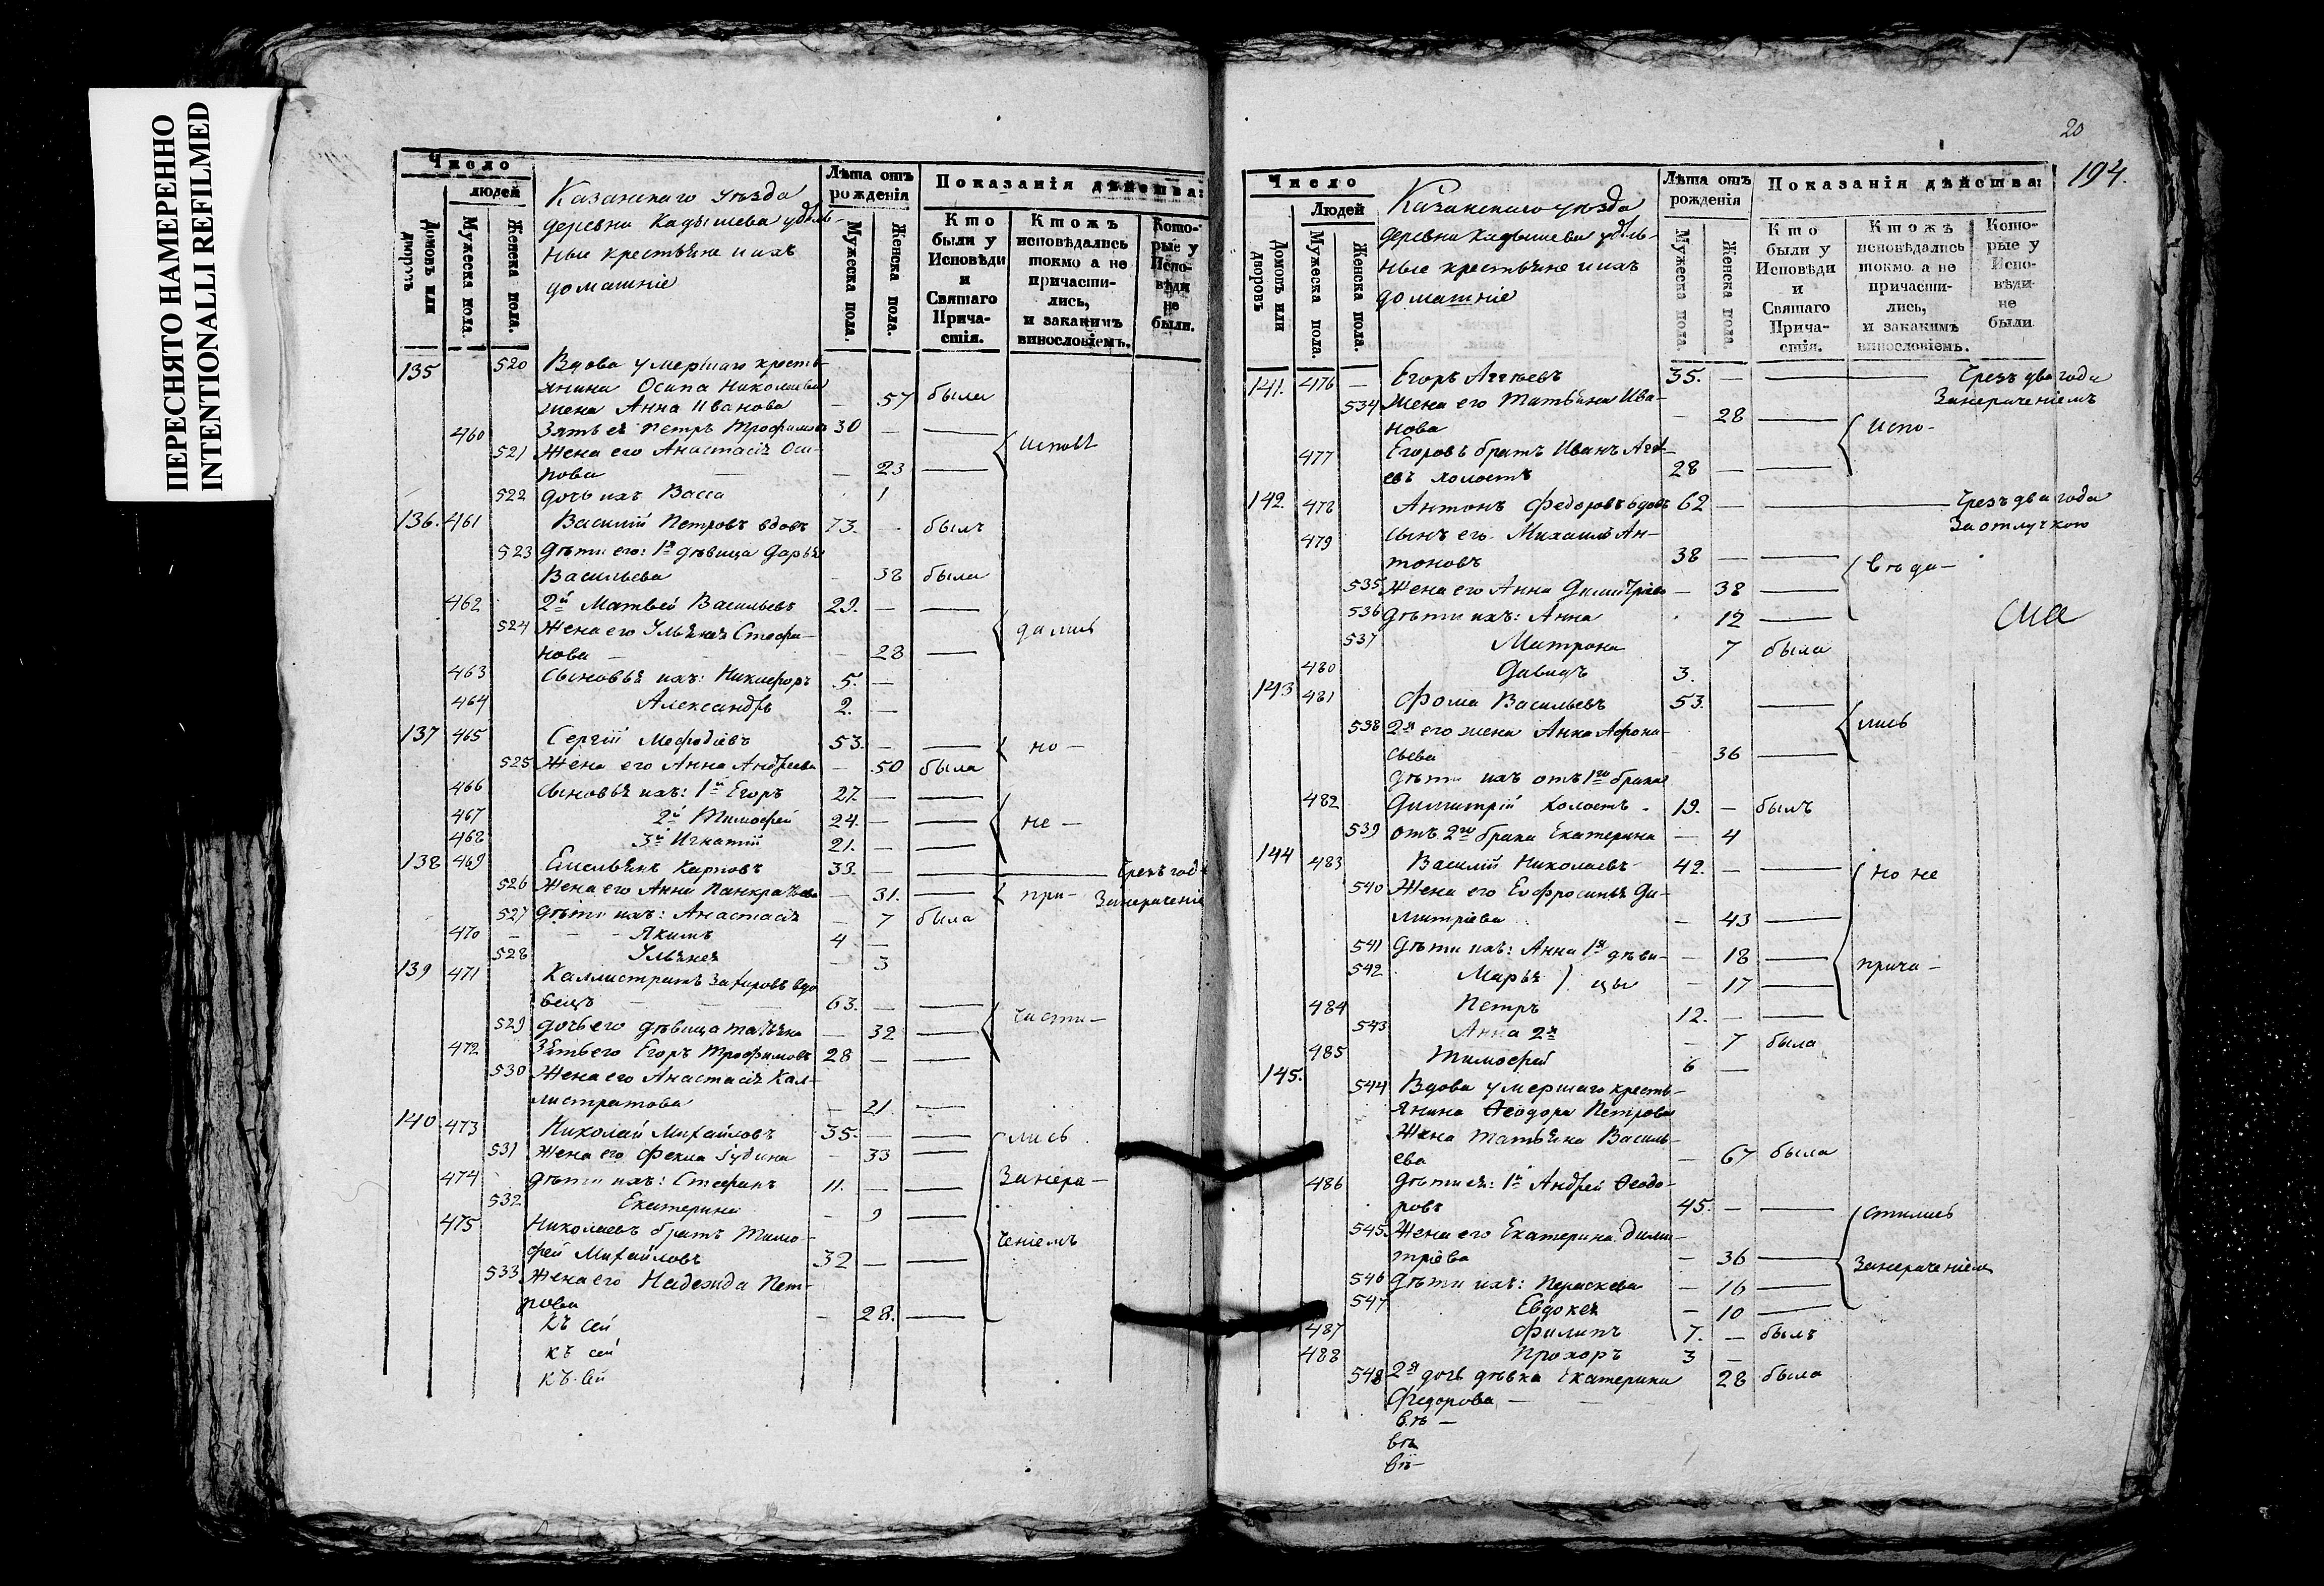 ПЕРЕСНЯТО НАМЕРЕННО
INTENTIONALLI REFILMED
Число
людей
Домовъ или дворовъ
Мужеска пола.
Женска пола.
Казанскаго уѣзда
деревни Кадышева удѣль-
ные крестьяне и ихъ
домашніе
Лѣта отъ рожденія
Мужеска пола.
Женска пола.
Показанія дѣйства:
Кто были у Исповѣди и Святаго Прича-стія.
Ктожъ исповѣдались токмо а не причасти-лись, и закакимъ винословіемъ.
Кото-рые у Испо-вѣди не были.
135 520 Вдова умершаго кресть-
янина Осипа Николаева
жена Анна Иванова — 57 была
460 Зять ея Петръ Трофимовъ 30 — — исповѣ
521 Жена его Анастасія Оси-
пова — 23 —
522 дочь ихъ Васса 1
136. 461 Василій Петровъ вдовъ 73. — былъ
523 Дѣти его: 1я дѣвица Дарья
Васильева — 38 была
462 2й Матвей Васильевъ 29. — —
524 Жена его Ульяна Стефа- дались
нова — 28 —
463 Сыновья ихъ: Никифоръ 5. —
464 Александръ 2. —
137 465 Сергій Мефодіевъ 53. — — но —
525 Жена его Анна Андреева — 50 была
466 Сыновья ихъ: 1й Егоръ 27. — —
467 2й Тимофей 24. — — не —
468 3й Игнатій 21. — —
138 469 Емельянъ Карповъ 33. — — Чрезъ годъ
526 Жена его Анна Панкратьева — 31. — при- Занераченіе
527 Дѣти ихъ: Анастасія — 7 была
470 — Якимъ 4 —
528 Ульяна — 3
139 471 Каллистратъ Захаровъ вдо-
вецъ 63. — —
529 дочь его дѣвица Татьяна — 32 — части-
472 Зять его Егоръ Трофимовъ 28 — —
530 Жена его Анастасія Кал-
листратова — 21. —
140 473 Николай Михайловъ 35. — — лись
531 Жена его Фекла Іудина — 33 —
474 Дѣти ихъ: Стефанъ 11. — — Занера-
532 Екатерина — 9 —
475 Николаевъ братъ Тимо- ченіемъ
фей Михайловъ 32 — —
533 Жена его Надежда Пет-
рова — 28. —
Къ сей
къ сей
къ сей
20
194.
Число
Людей
Домовъ или дворовъ
Мужеска пола.
Женска пола.
Казанскаго уѣзда
деревни Кадышева удѣль-
ные крестьяне и ихъ
домашніе
Лѣта отъ рожденія
Мужеска пола.
Женска пола.
Показанія дѣйства:
Кто были у Исповѣди и Святаго Прича-стія.
Ктожъ исповѣдались токмо а не причасти-лись, и закакимъ винословіемъ.
Кото-рые у Испо-вѣди не были
141. 476 — Егоръ Агѣевъ 35. — — Чрезъ два года
534 Жена его Татьяна Ива- Занераченіемъ
нова — 28 — Испо-
477 Егоровъ братъ Иванъ Агѣ-
евъ холостъ 28 — —
142. 478 Антонъ Федоровъ вдовъ 62 — — Чрезъ два года
479 Сынъ его Михаилъ Ан- За отлучкою
тоновъ 38 — — вѣда-
535 Жена его Анна Димитріева — 38 —
536 Дѣти ихъ: Анна 12 —
сла
537 Матрона 7 была
480 Давидъ 3.
143 481 Фома Васильевъ 53. —
538 2я его жена Анна Афона- лись
сьева — 36 —
Дѣти ихъ отъ 1го брака
482 Димитрій холостъ 19. — былъ
539 отъ 2го брака Екатерина — 4
144 483 Василій Николаевъ 42. — — но не
540 Жена его Евфросинья Ди-
митріева — 43 —
541 Дѣти ихъ: Анна 1я дѣви- — 18 —
542 Марья цы — 17 — прича-
484 Петръ 12. — —
543 Анна 2я — 7 была
485 Тимофей 6 —
145. 544 Вдова умершаго кресть-
янина Ѳеодора Петрова
Жена Татьяна Василь-
ева — 67 была
486 Дѣти ея: 1й Андрей Ѳеодо-
ровъ 45. — — стились
545 Жена его Екатерина Дими-
тріева — 36 — Занераченіем
546 Дѣти ихъ: Параскева — 16 —
547 Евдокея — 10 —
487 Филипъ 7. — былъ
488 Прохоръ 3 —
548 2я дочь дѣвка Екатерина 28 была
Федорова —
вѣ —
вѣ
вѣ —